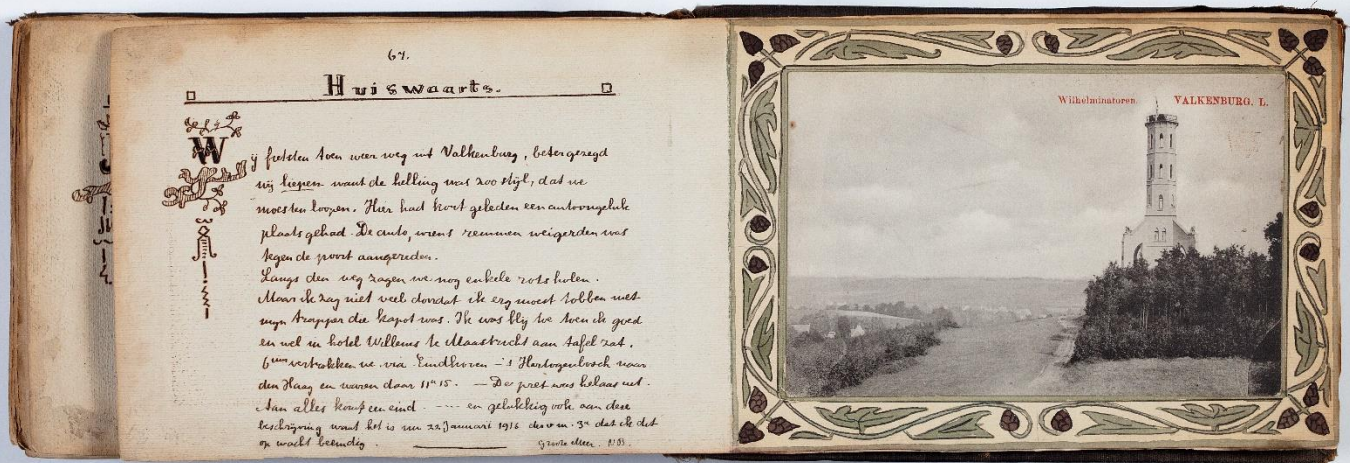 67.
Huiswaarts.
Wij fietsten toen weer weg uit Valkenburg, beter gezegd
wij liepen want de helling was zoo stijl, dat we
moesten loopen. Hier had kort geleden een autoongeluk
plaats gehad. De auto, wiens remmen weigerden was
tegen de poort aangereden.
Langs den weg zagen we nog enkele rotsholen.
Maar ik zag niet veel doordat ik erg moest tobben met
mijn trapper die kapot was. Ik was blij toen ik goed
en wel in hotel Willems te Maastricht aan tafel zat.
6 uur vertrokken we via Eindhoven - 's Hertogenbosch naar
den Haag en waren daar 11 u 15. — De pret was helaas uit.
Aan alles komt een eind. --- en gelukkig ook aan deze
beschrijving want het is nu 22 Januari 1916 des v.m. 3 u dat ik dit
op wacht beeindig.
Wilhelminatoren.
VALKENBURG. L.